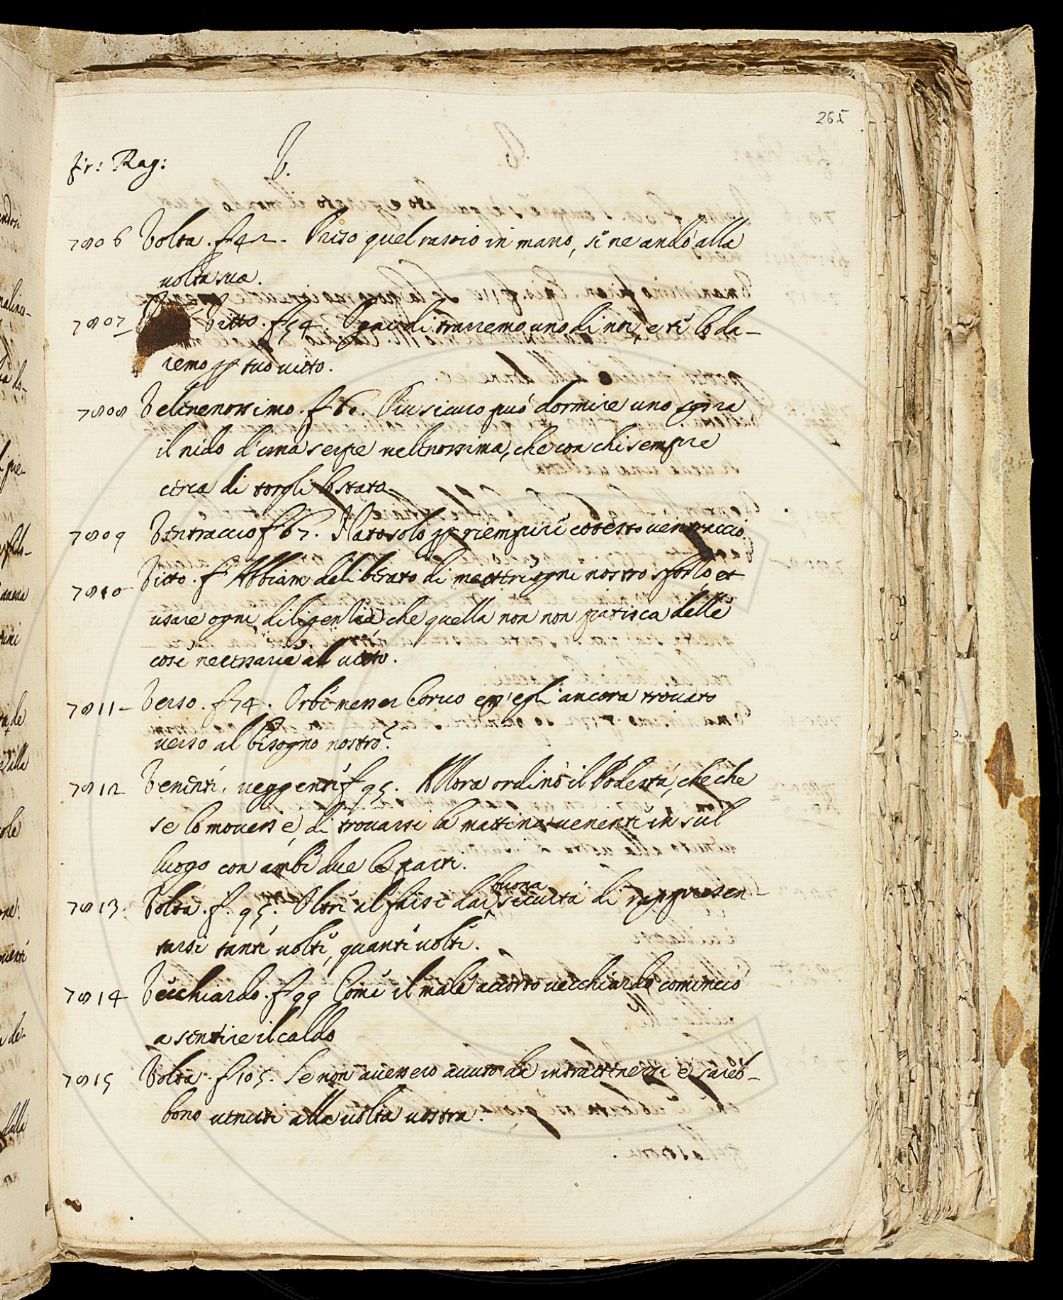 265
fr: Rag: V.
7806 Volta. f 42. Preso quel rasoio in mano, si ne andò alla
volta sua.
7807 Vitto. f 54. trarremo uno di noi, e ti lo da-
remo per tuo vitto.
7808 Velenenossimo. f 61. Piu sicuro può dormire uno sopra
il nido d'una serpe velenossima, che con chi sempre
cerca di torgli lo stato
7809 Ventraccio f 67. Nato solo per riempire cotesto ventraccio.
7810 Vitto. f Abbiam deliberato di mettere ogni nostro sforzo et
usare ogni diligentia che quella non non patisca delle
cose necessarie al vitto.
7811 Verso. f 74. Orbi nenes Corico egli ancora trovato
verso al bisogno nostro?
7812 Venenti, veggenti f 95. Allora ordinò il Podestà, che che
se lo movesse di trovarsi la mattina venente in sul
luogo con ambi due le parti.
7813. Volta. f. 95. Oltre al farsi dar buona sicurtà di rappresen
tarsi tante volte, quante volte.
7814 Vecchiardo. f 99 Come il male accorto vecchiardo cominciò
a sentire il caldo
7815 Volta. f 105. Se non avessero avuto da intrattenersi e' sareb-
bono venuti alla volta vostra.